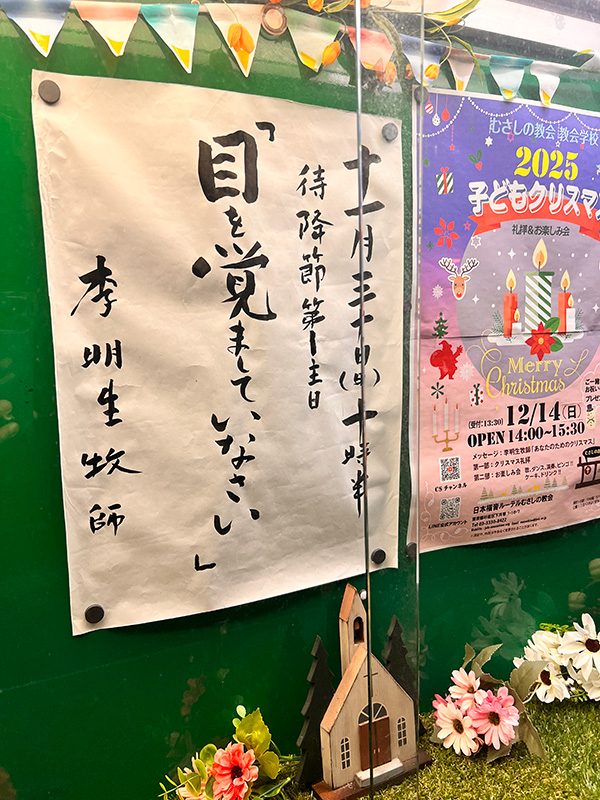 十一月三十日(日)十時半
待降節第1主日
「目を覚ましていなさい」
李明生牧師
むさしの教会 教会学校
2025
子どもクリスマス
礼拝&お楽しみ会
Merry
Christmas
(受付:13:30) 12/14(日)
OPEN 14:00~15:30
メッセージ:李明生牧師「あなたのためのクリスマス」
第一部:クリスマス礼拝
第二部:お楽しみ会 歌、ダンス、演奏、ビンゴ!!
ケーキ、ドリンク!!
CSチャンネル
LINE公式アカウント
日本福音ルーテルむさしの教会